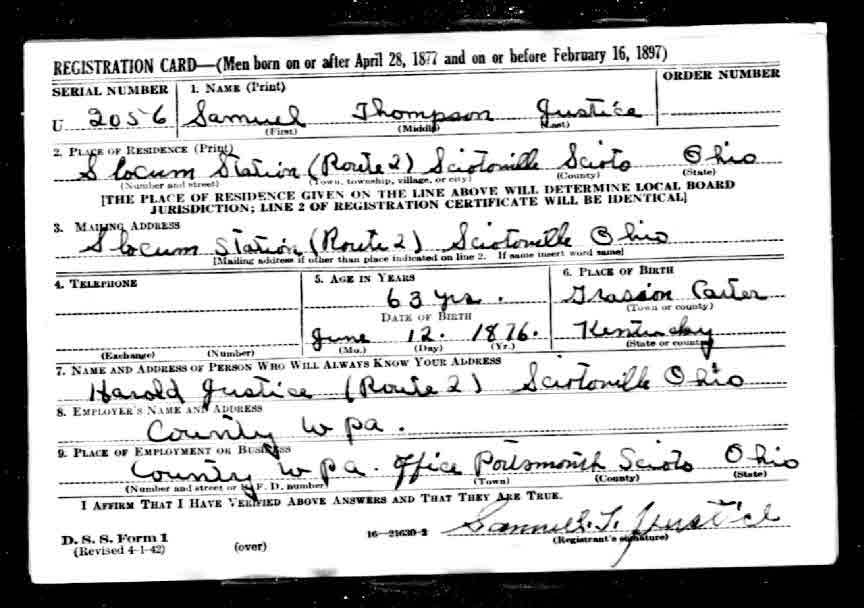 REGISTRATION CARD—(Men born on or after April 28, 1877 and on or before February 16, 1897)
SERIAL NUMBER 1. NAME (Print) ORDER NUMBER
U 2056 Samuel Thompson Justice
(First) (Middle) (Last)
2. PLACE OF RESIDENCE (Print)
Slocum Station (Route 2) Sciotoville Scioto Ohio
(Number and street) (Town, township, village, or city) (County) (State)
[THE PLACE OF RESIDENCE GIVEN ON THE LINE ABOVE WILL DETERMINE LOCAL BOARD
JURISDICTION; LINE 2 OF REGISTRATION CERTIFICATE WILL BE IDENTICAL]
3. MAILING ADDRESS
Slocum Station (Route 2) Sciotoville Ohio
[Mailing address if other than place indicated on line 2. If same insert word same]
4. TELEPHONE 5. AGE IN YEARS 6. PLACE OF BIRTH
63 yrs. Carter
DATE OF BIRTH (Town or county)
June 12. 1876. Kentucky
(Exchange) (Number) (Mo.) (Day) (Yr.) (State or country)
7. NAME AND ADDRESS OF PERSON WHO WILL ALWAYS KNOW YOUR ADDRESS
Harold Justice (Route 2) Sciotoville Ohio
8. EMPLOYER'S NAME AND ADDRESS
County W pa.
9. PLACE OF EMPLOYMENT OR BUSINESS
County W pa. Office Portsmouth Scioto Ohio
(Number and street or R. F. D. number) (Town) (County) (State)
I AFFIRM THAT I HAVE VERIFIED ABOVE ANSWERS AND THAT THEY ARE TRUE.
Samuel. T. Justice
D. S. S. Form 1 16—21630-2 (Registrant's signature)
(Revised 4-1-42) (over)